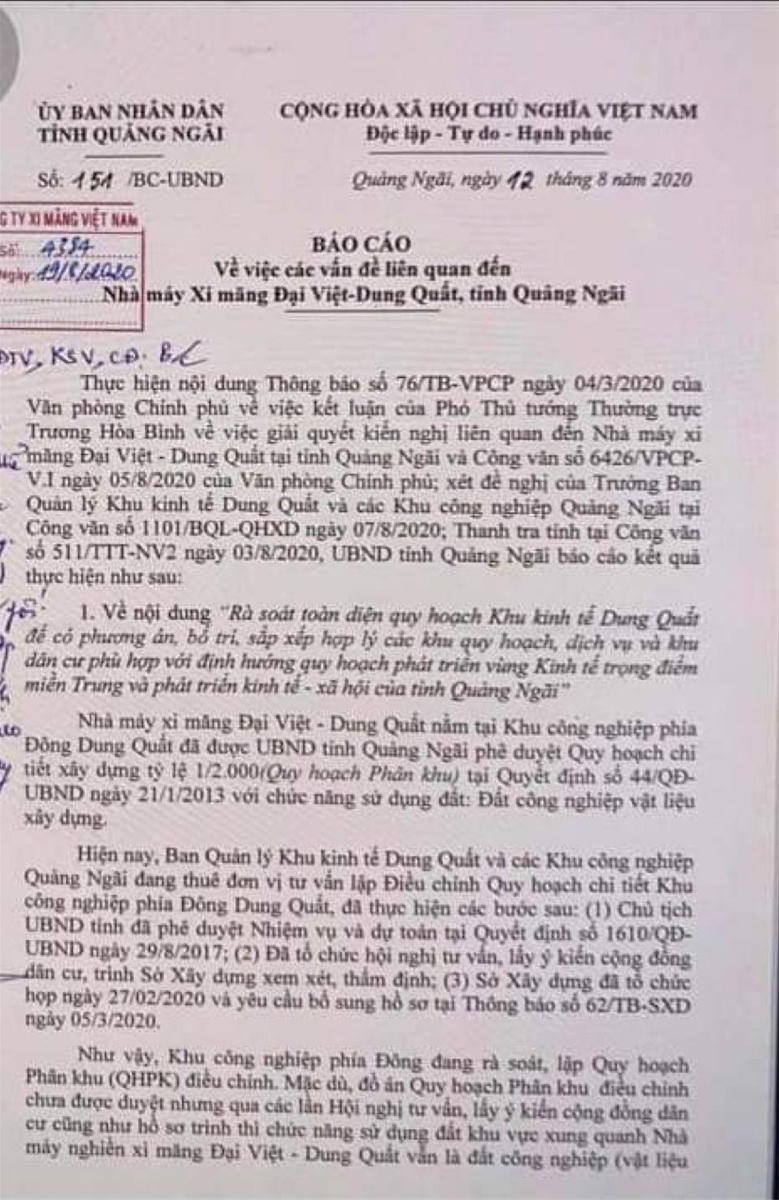 ỦY BAN NHÂN DÂN
TỈNH QUẢNG NGÃI
CỘNG HÒA XÃ HỘI CHỦ NGHĨA VIỆT NAM
Độc lập - Tự do - Hạnh phúc
Số: 151 /BC-UBND
Quảng Ngãi, ngày 12 tháng 8 năm 2020
G TY XI MĂNG VIỆT NAM
Số: 4384
Ngày: 19/8/2020
BÁO CÁO
Về việc các vấn đề liên quan đến
Nhà máy Xi măng Đại Việt-Dung Quất, tỉnh Quảng Ngãi
ĐTV, KSV, CĐ.
Thực hiện nội dung Thông báo số 76/TB-VPCP ngày 04/3/2020 của
Văn phòng Chính phủ về việc kết luận của Phó Thủ tướng Thường trực
Trương Hòa Bình về việc giải quyết kiến nghị liên quan đến Nhà máy xi
măng Đại Việt - Dung Quất tại tỉnh Quảng Ngãi và Công văn số 6426/VPCP-
V.I ngày 05/8/2020 của Văn phòng Chính phủ; xét đề nghị của Trưởng Ban
Quản lý Khu kinh tế Dung Quất và các Khu công nghiệp Quảng Ngãi tại
Công văn số 1101/BQL-QHXD ngày 07/8/2020; Thanh tra tỉnh tại Công văn
số 511/TTT-NV2 ngày 03/8/2020, UBND tỉnh Quảng Ngãi báo cáo kết quả
thực hiện như sau:
1. Về nội dung "Rà soát toàn diện quy hoạch Khu kinh tế Dung Quất
để có phương án, bố trí, sắp xếp hợp lý các khu quy hoạch, dịch vụ và khu
dân cư phù hợp với định hướng quy hoạch phát triển vùng Kinh tế trọng điểm
miền Trung và phát triển kinh tế - xã hội của tỉnh Quảng Ngãi"
Nhà máy xi măng Đại Việt - Dung Quất nằm tại Khu công nghiệp phía
Đông Dung Quất đã được UBND tỉnh Quảng Ngãi phê duyệt Quy hoạch chi
tiết xây dựng tỷ lệ 1/2.000(Quy hoạch Phân khu) tại Quyết định số 44/QĐ-
UBND ngày 21/1/2013 với chức năng sử dụng đất: Đất công nghiệp vật liệu
xây dựng.
Hiện nay, Ban Quản lý Khu kinh tế Dung Quất và các Khu công nghiệp
Quảng Ngãi đang thuê đơn vị tư vấn lập Điều chỉnh Quy hoạch chi tiết Khu
công nghiệp phía Đông Dung Quất, đã thực hiện các bước sau: (1) Chủ tịch
UBND tỉnh đã phê duyệt Nhiệm vụ và dự toán tại Quyết định số 1610/QĐ-
UBND ngày 29/8/2017; (2) Đã tổ chức hội nghị tư vấn, lấy ý kiến cộng đồng
dân cư, trình Sở Xây dựng xem xét, thẩm định; (3) Sở Xây dựng đã tổ chức
họp ngày 27/02/2020 và yêu cầu bổ sung hồ sơ tại Thông báo số 62/TB-SXD
ngày 05/3/2020.
Như vậy, Khu công nghiệp phía Đông đang rà soát, lập Quy hoạch
Phân khu (QHPK) điều chỉnh. Mặc dù, đồ án Quy hoạch Phân khu điều chỉnh
chưa được duyệt nhưng qua các lần Hội nghị tư vấn, lấy ý kiến cộng đồng dân
cư cũng như hồ sơ trình thì chức năng sử dụng đất khu vực xung quanh Nhà
máy nghiền xi măng Đại Việt - Dung Quất vẫn là đất công nghiệp (vật liệu